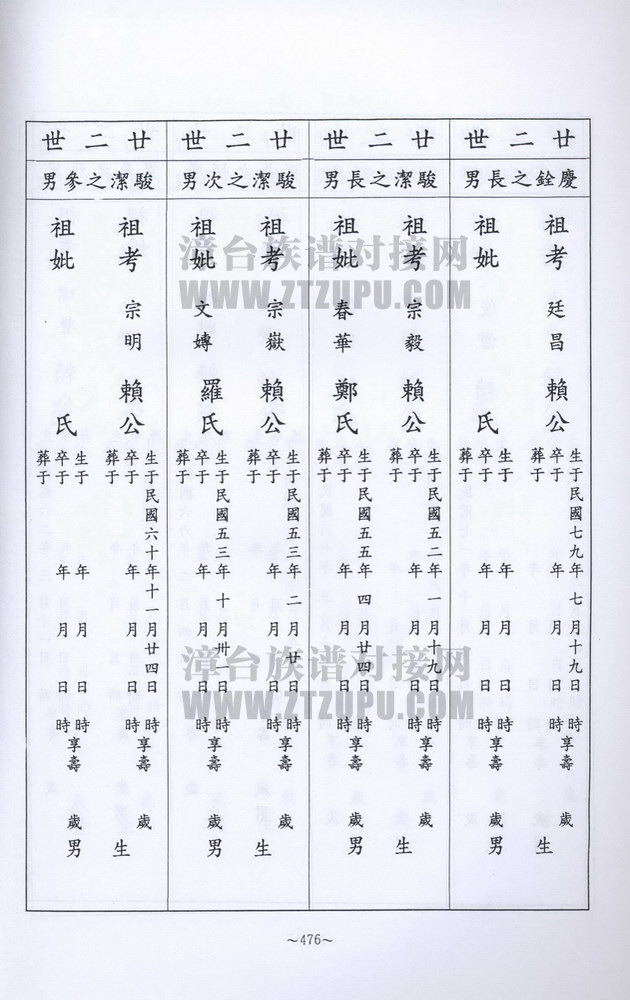 廿二世
慶銓之長男
祖考 廷昌 賴公
生于民國七九年七月十九日 時
卒于 年 月 日 時享壽 歲
葬于
祖妣 氏
生于 年 月 日 時
卒于 年 月 日 時享壽 歲
葬于
生 男
廿二世
駿潔之長男
祖考 宗毅 賴公
生于民國五二年一月十九日 時
卒于 年 月 日 時享壽 歲
葬于
祖妣 春華 鄭氏
生于民國五五年四月廿四日 時
卒于 年 月 日 時享壽 歲
葬于
生 男
廿二世
駿潔之次男
祖考 宗嶽 賴公
生于民國五三年二月廿日 時
卒于 年 月 日 時享壽 歲
葬于
祖妣 文嫥 羅氏
生于民國五三年十月卅一日 時
卒于 年 月 日 時享壽 歲
葬于
生 男
廿二世
駿潔之參男
祖考 宗明 賴公
生于民國六十年十一月廿四日 時
卒于 年 月 日 時享壽 歲
葬于
祖妣 氏
生于 年 月 日 時
卒于 年 月 日 時享壽 歲
葬于
生 男
～476～
漳台族谱对接网
WWW.ZTZUPU.COM
漳台族谱对接网
WWW.ZTZUPU.COM